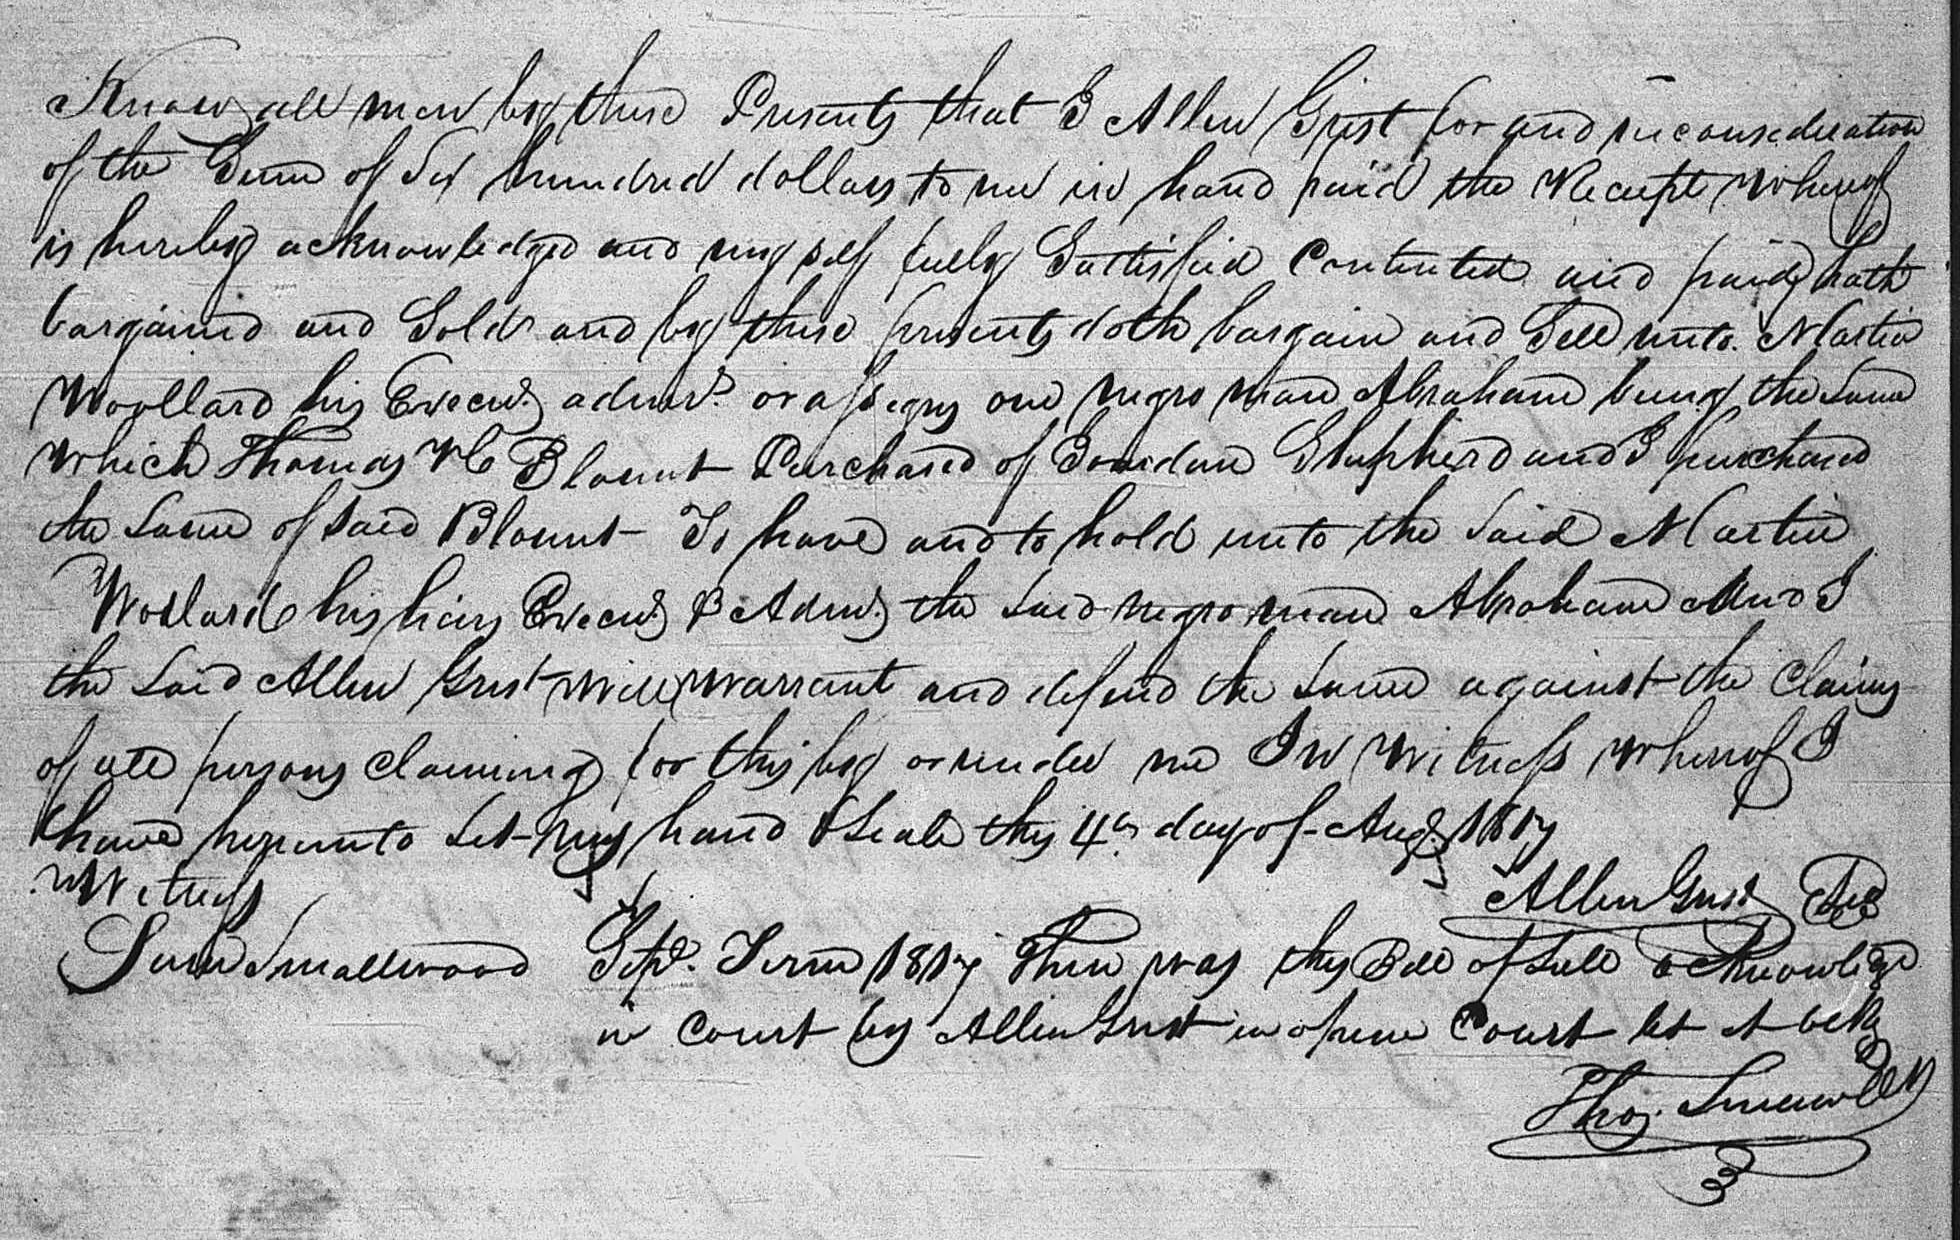 Know all men by these Presents that I Allen Grist for and in consideration
of the Sum of Six hundred dollars to me in hand paid the Receipt Whereof
is hereby acknowledged and my self fully Sattisfied Contented and paid hath
bargained and Sold and by these presents doth bargain and Sell unto Martin
Woollard his Execus. admrs. or assigns one negro man Abraham being the Same
which Thomas H Blount Purchased of Jourdan Shepherd and I purchased
the Same of said Blount To have and to hold unto the Said Martin
Wollard his heirs Execus. & Adms. the Said negro man Abraham And I
the Said Allen Grist Will Warrant and defend the Same against the Claims
of all persons claiming for this by or under me In Witness Whereof I
have hereunto Set my hand & Seale this 4th day of Augs. 1817
Witness
Allen Grist
Smallwood Sept. Term 1817 Then was this Bill of Sale acknowledge
in Court by Allen Grist in open Court let it be
Thos. Smaw